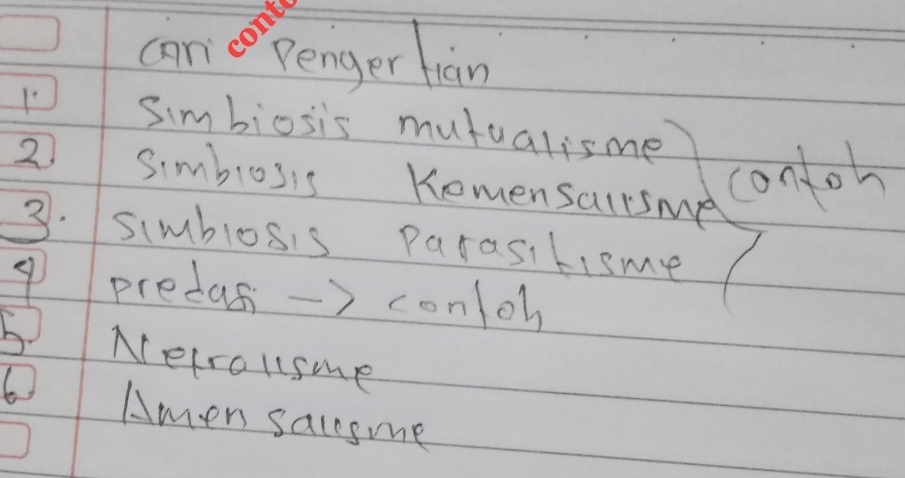 cari Pengertian
1. Simbiosis mutualisme
2 Simbiosis Komensalisme contoh
3. Simbiosis Parasitisme
4 predasi -> contoh
5. Netralisme
6. Amensalisme